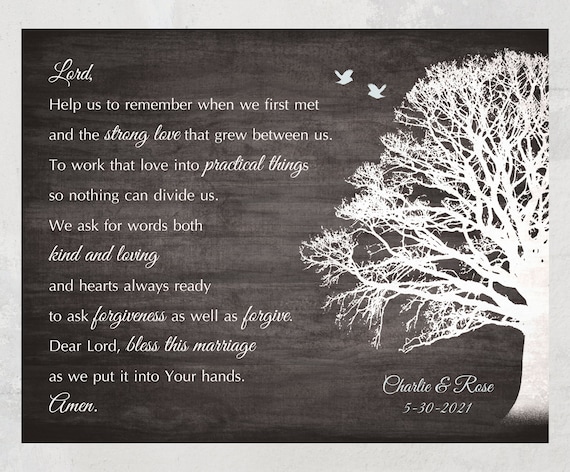 Lord,
Help us to remember when we first met
and the strong love that grew between us.
To work that love into practical things
so nothing can divide us.
We ask for words both
kind and loving
and hearts always ready
to ask forgiveness as well as forgive.
Dear Lord, bless this marriage
as we put it into Your hands.
Amen.
Charlie & Rose
5-30-2021